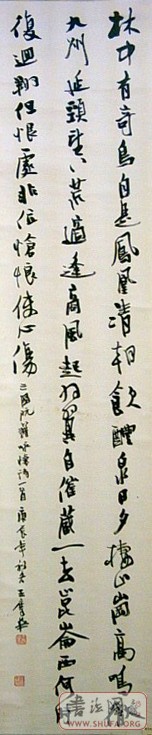 林中有奇鳥自是鳳凰清朝飲醴泉日夕棲山崗高鳴徹
九州延頸望八荒適逢商風起羽翼自催藏一去崑崙西何時
復迴翔但恨處非位愴恨使心傷
三國阮籍咏懷詩一首庚辰年
WWW.SHUFA.ORG